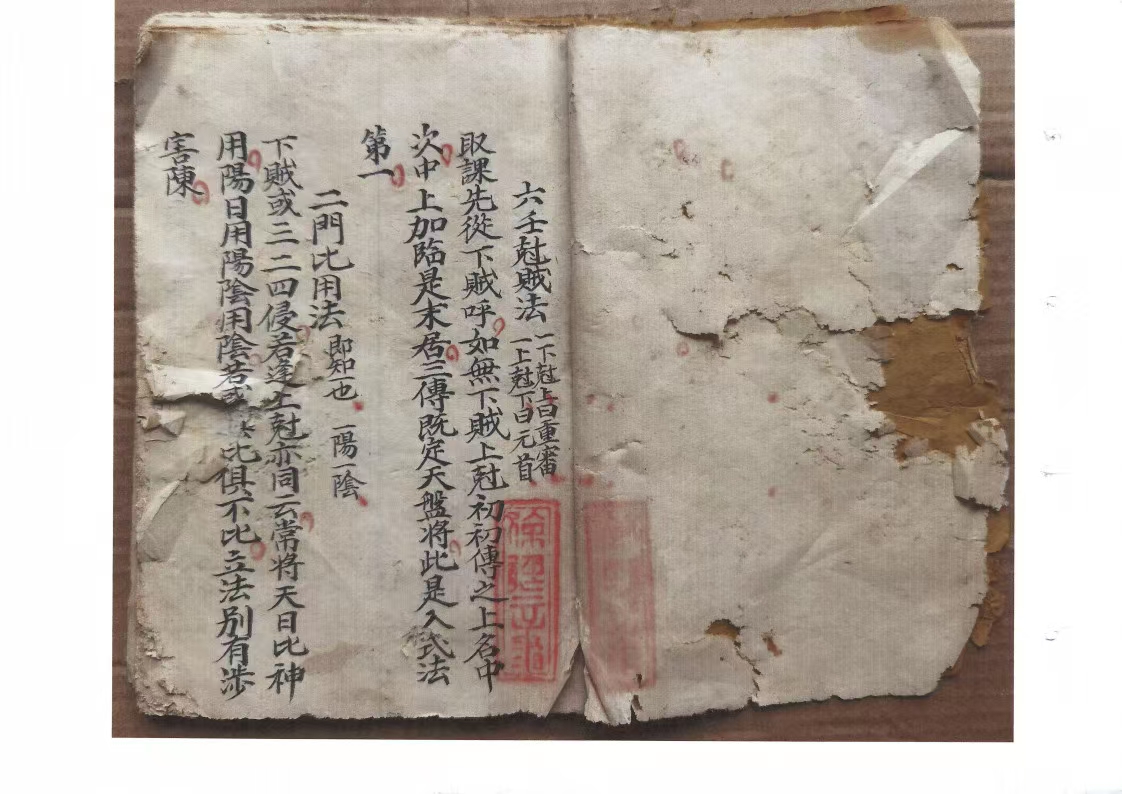 六壬尅賊法
一下尅上曰重審
一上尅下曰元首
取課先從下賊呼如無下賊上尅初初傳之上名中
次中上加臨是末居三傳既定天盤將此是入式法
第一
二門比用法 即知一也 一陽一陰
下賊或三二四侵若逢上尅亦同云常將天日比神
用陽日用陽陰用陰若或比俱不比立法別有涉
害陳